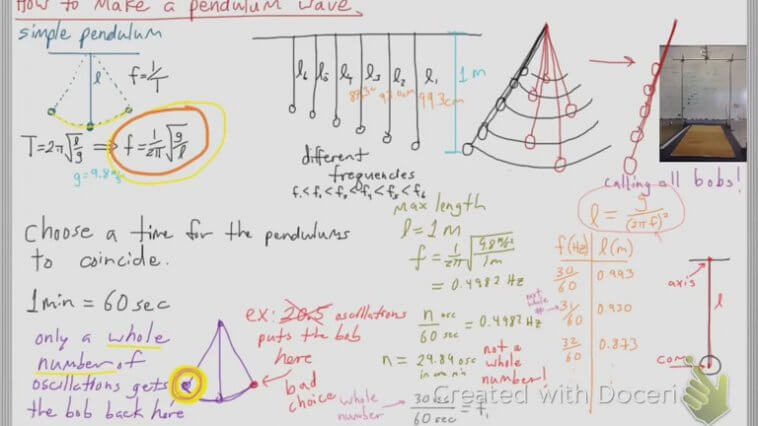 How to Make a pendulum wave.
simple pendulum
l
f=1/T
T=2π√(l/g) ⟹ f=1/2π √(g/l)
g=9.8m/s²
l₆ l₅ l₄ l₃ l₂ l₁
1m
99.3cm
different
frequencies
f₁<f₂<f₃<f₄<f₅<f₆
calling all bobs!
l = g/(2πf)²
Choose a time for the pendulums
to coincide.
1min = 60sec
only a whole
number of
oscillations gets
the bob back here
ex: 20.5 oscillations
puts the bob
here
bad
choice
Max length
l=1m
f=1/2π √(9.8m/s²/1m)
=0.4982 Hz
n osc/60 sec = 0.4982 Hz
n = 29.89 osc
in one min
not a
whole
number!
whole
number
30 osc/60 sec = f₁
f(Hz) l(m)
30/60 0.993
not
whole
#
31/60 0.930
32/60 0.873
axis
l
COM
Created with Doceri